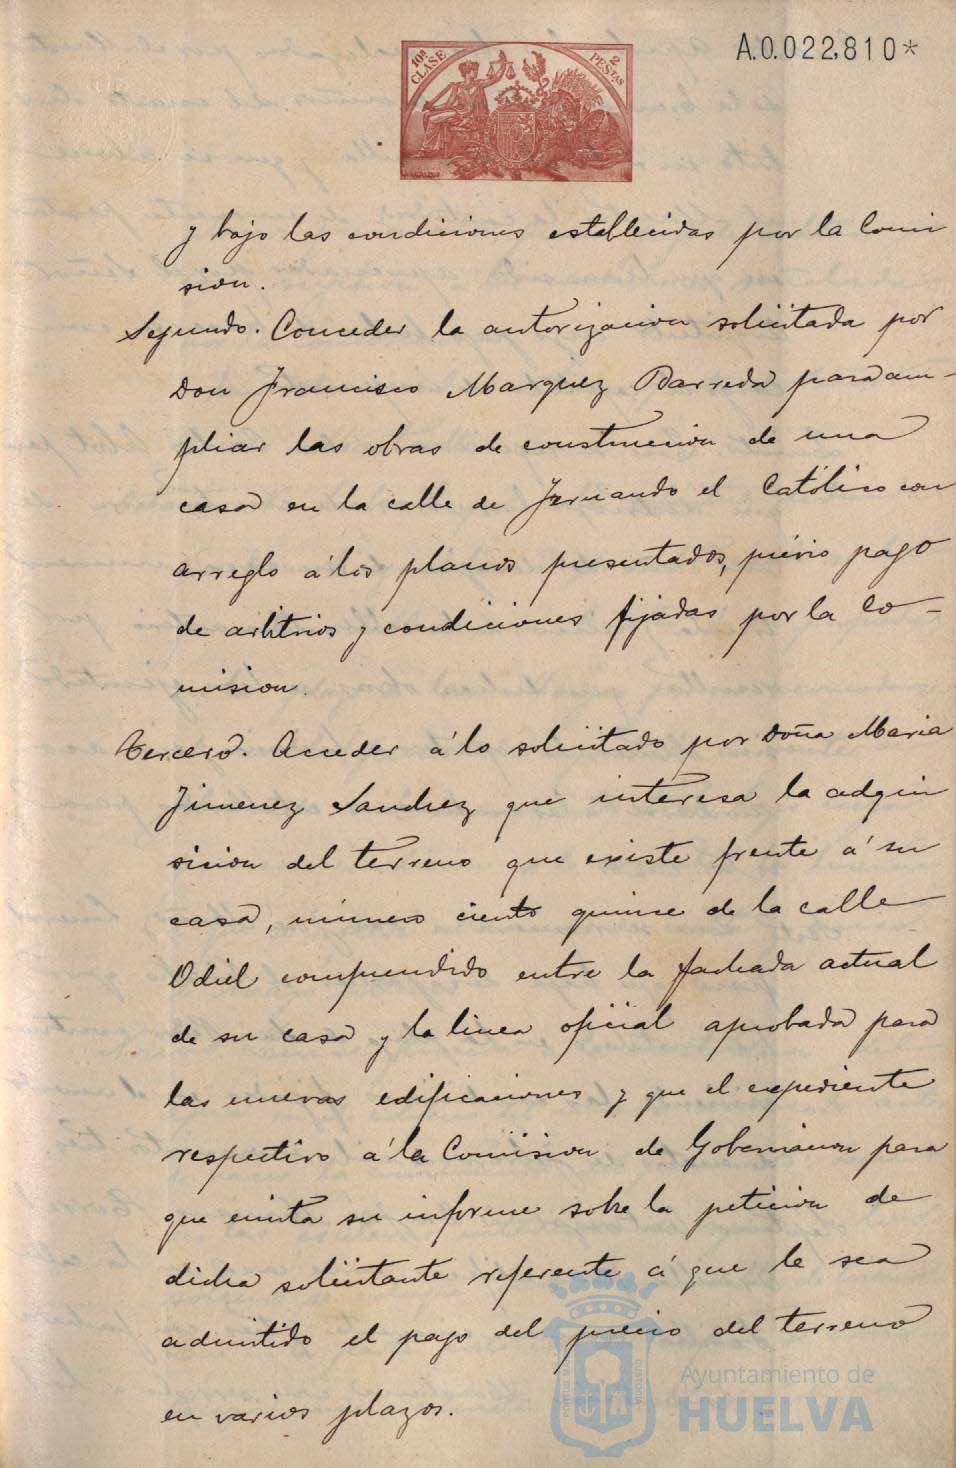 10ª CLASE
2 PESTAS
A.0.022,810*
y bajo las condiciones establecidas por la Comi
sion.
Segundo. Conceder la autorizacion solicitada por
Don Francisco Marquez Barreda para am-
pliar las obras de construccion de una
casa en la calle de Fernando el Católico con
arreglo á los planos presentados, prévio pago
de arbitrios y condiciones fijadas por la Co-
mision.
Tercero. Acceder á lo solicitado por Doña Maria
Jimenez Sanchez que interesa la adqui
sicion del terreno que existe frente á su
casa, número ciento quince de la calle
Odiel comprendido entre la fachada actual
de su casa y la linea oficial aprobada para
las nuevas edificaciones y que el expediente
respectivo á la Comision de Gobernacion para
que emita su informe sobre la peticion de
dicha solicitante referente á que le sea
admitido el pago del precio del terreno
en varios plazos.
Ayuntamiento de
HUELVA